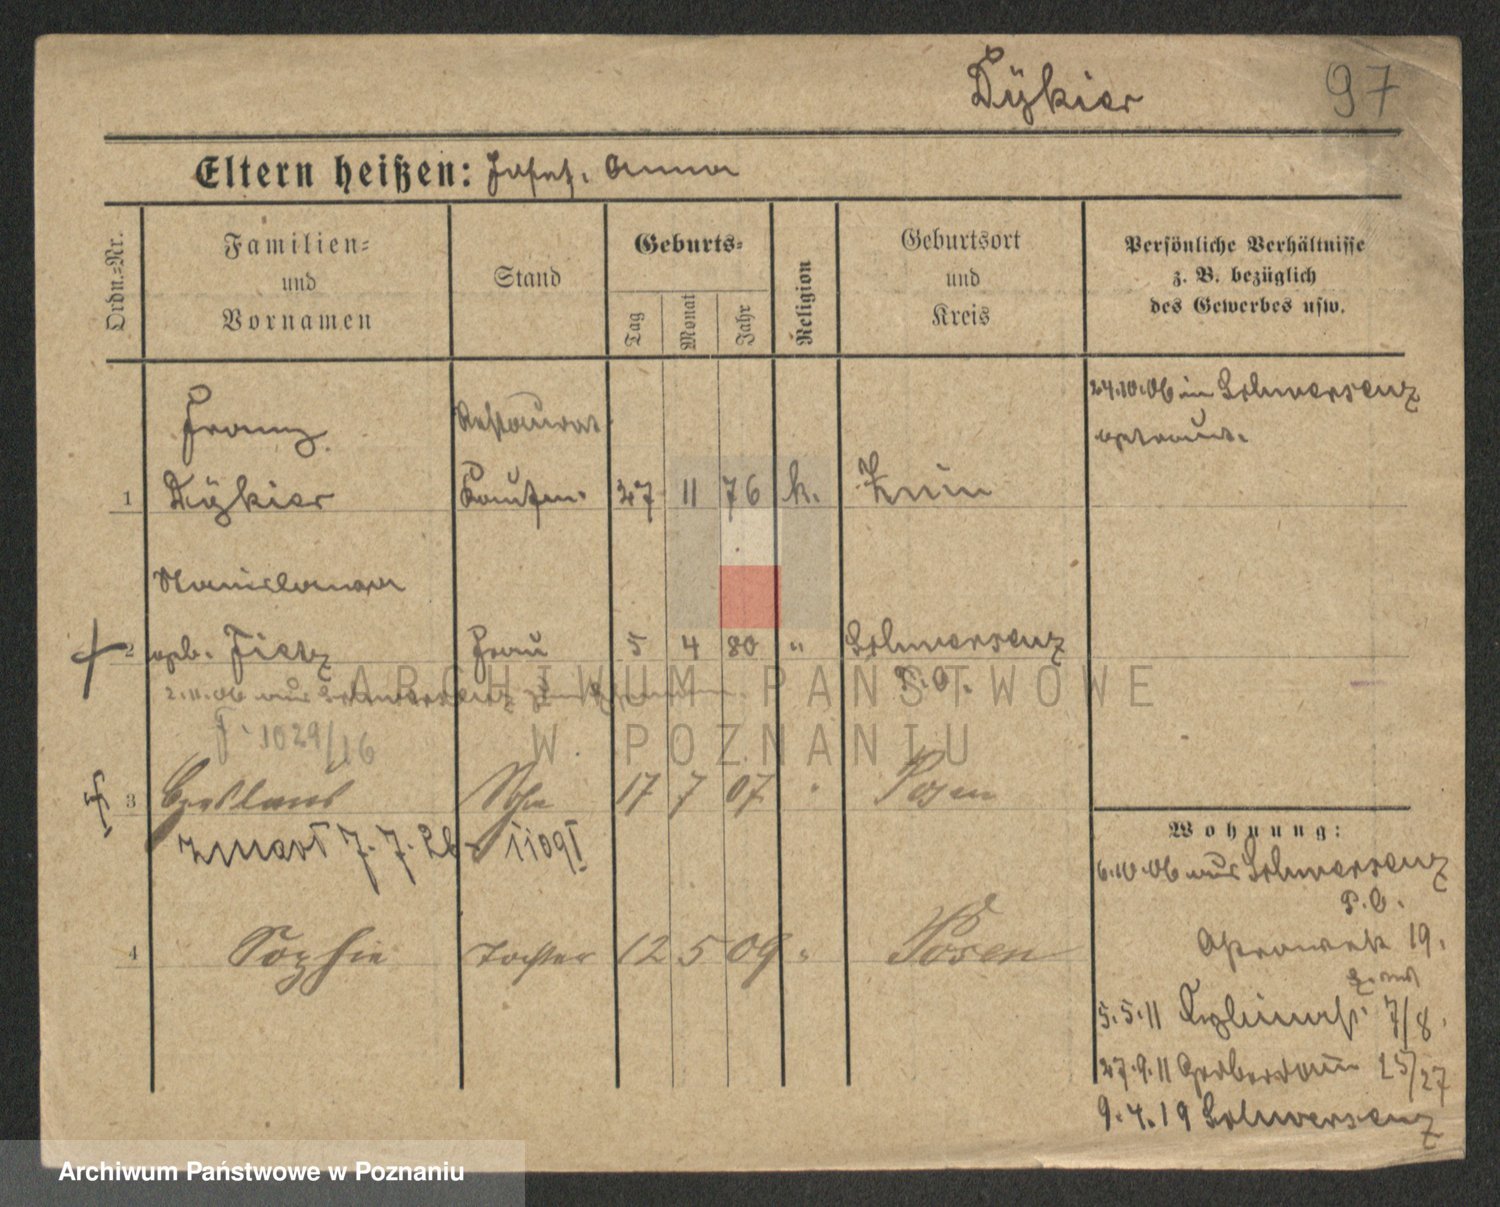 Dÿkier 97
Eltern heißen: Josef. Anna
Ordn.=Nr.
Familien=
und
Vornamen
Stand
Geburts=
Tag
Monat
Jahr
Religion
Geburtsort
und
Kreis
Persönliche Verhältnisse
z. B. bezüglich
des Gewerbes usw.
Franz
Restaurat
24.10.06 in Schwersenz
getraut.
1 Dÿkier Kaufm. 27 11 76 k. Znin
Stanislawa
2 geb. Fietz Frau 5 4 80 " Schwersenz
P. O.
2.11.06 aus Schwersenz
F. 1029/16
3 Sohn 17 7 07 " Posen
zmarł 7. 7. 26 - 1109
4 Sophie Tochter 12 5 09 " Posen
Wohnung:
6.10.06 aus Schwersenz
P. O.
19.
5.5.11 7/8.
27.9.11 Gerberdamm 25/27
9.4.19 Schwersenz
ARCHIWUM PAŃSTWOWE
W POZNANIU
Archiwum Państwowe w Poznaniu